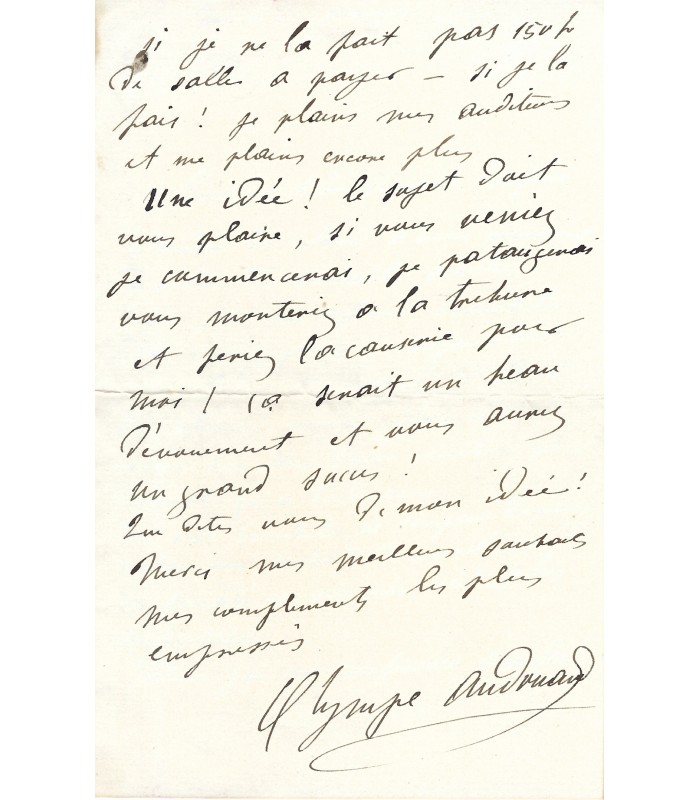 si je ne la fait pas 150 fr
de salles a payer – si je la
fais ! je plains mes auditeurs
et me plains encore plus
Une idée ! le sujet doit
vous plaire, si vous veniez
je commencerai, je pataugerai
vous monteriez a la tribune
et feriez la causerie pour
moi ! ça serait un beau
dévouement et vous auriez
un grand succès !
Qu'en dites vous de mon idée !
Merci mes meilleurs souhaits
mes compliments les plus
empressés
Olympe Audouard